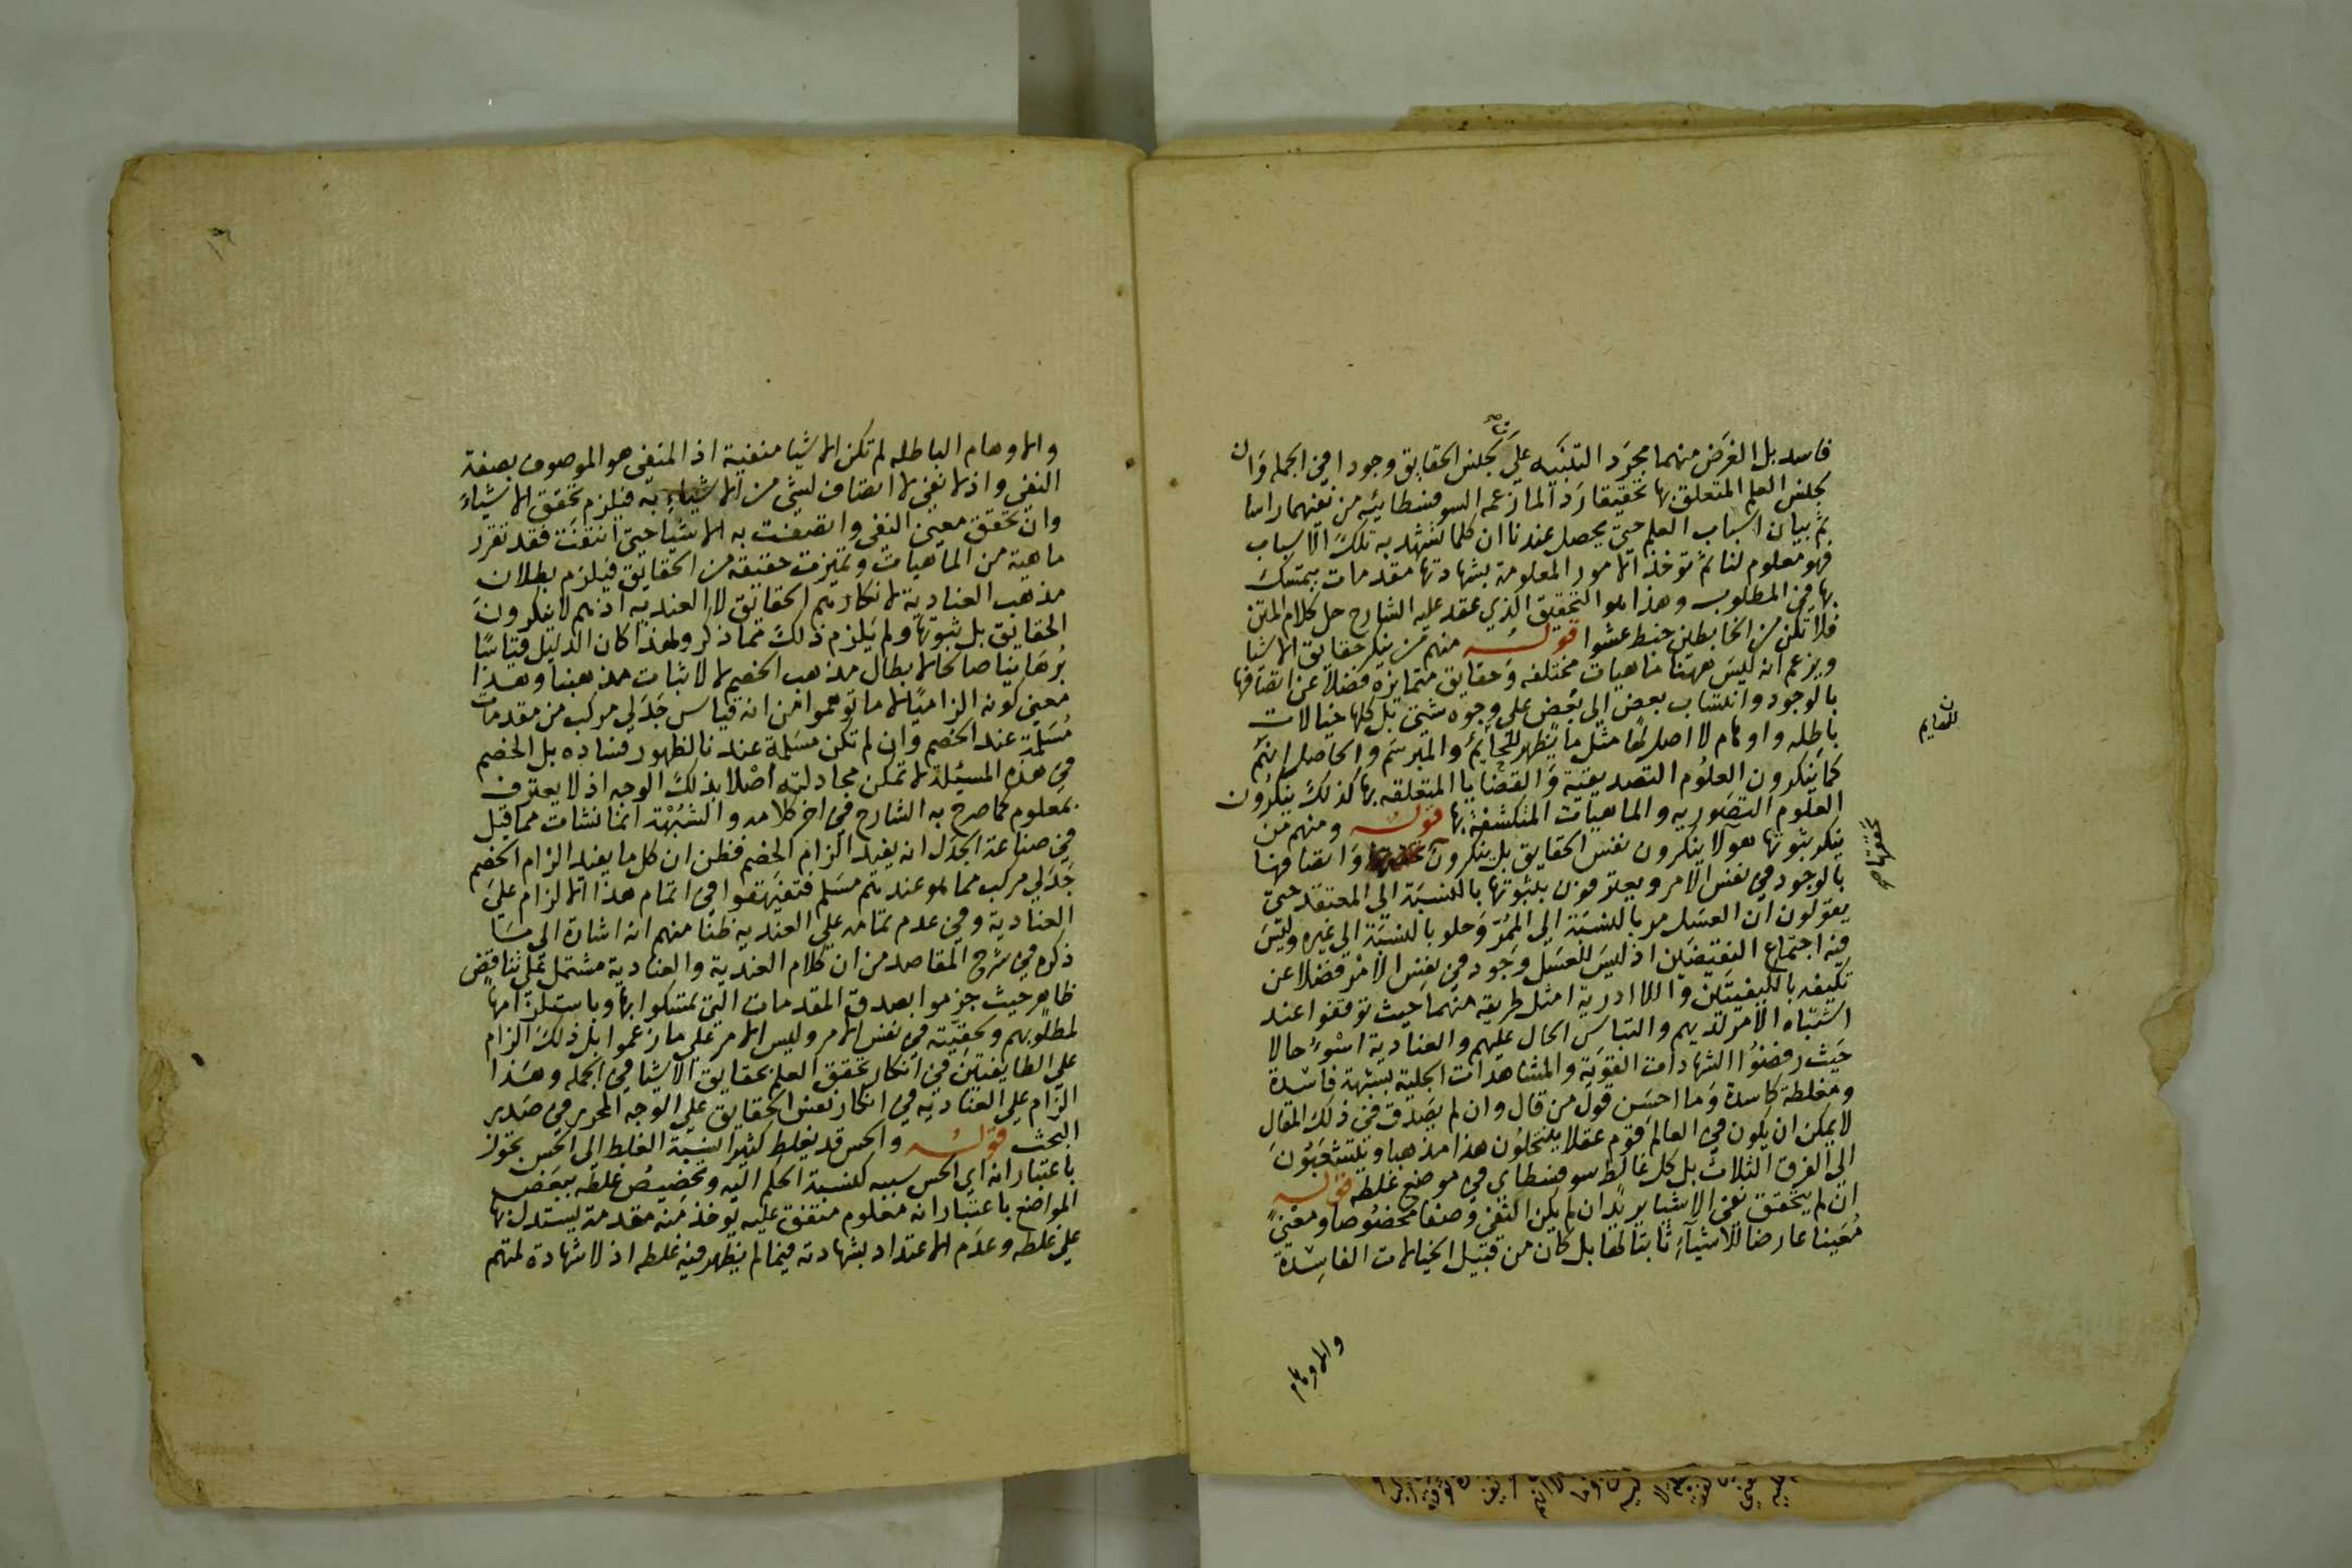 فاسد بل الغرض منهما مجرد التنبيه على ان لجنس الحقايق وجودا في الجمله وان
لجنس العلم المتعلق بها تحققا ردا لما زعمه السوفسطائيه من نفيهما راسا
ثم بيان اسباب العلم حتى يحصل عندنا ان كلما تشهد به تلك الاسباب
فهو معلوم لنا ثم توخذ الامور المعلومة بشهادتها مقدمات يتمسك
بها في المطلوب وهذا هو التحقيق الذي عقد عليه الشارح حل كلام المتن
فلا تكن من الخابطين خبط عشوا قوله منهم من ينكر حقايق الاشيا
ويزعم انه ليس ههنا ماهيات مختلفه وحقايق متمايزه فضلا عن اتصافها
بالوجود وانتساب بعض الى بعض على وجوه شتى بل كلها خيالات
باطله واوهام لا اصل لها مثل ما يظهر للنايم والمبرسم والحاصل انهم
كما ينكرون العلوم التصديقية والقضايا المتعلقه بها كذلك ينكرون
العلوم التصوريه والماهيات المنكشفة بها قوله ومنهم من
ينكر ثبوتها هولا ينكرون نفس الحقايق بل ينكرون واتصافها
بالوجود في نفس الامر ويعترفون بثبوتها بالنسبة الى المعتقد حتى
يقولون ان العسل مر بالنسبة الى الممرّ وحلو بالنسبة الى غيره وليس
فيه اجتماع النقيضين اذ ليس للعسل وجود في نفس الامر فضلا عن
تكيفه بالكيفيتين واللا ادرية امثل طريقه منهما حيث توقفوا عند
اشتباه الامر لديهم والتباس الحال عليهم والعنادية اسوء حالا
حيث رفضوا الشهادات القوية والمشاهدات الجلية بشبهة فاسدة
ومغلطة كاسدة وما احسن قول من قال وان لم يصدق في ذلك المقال
لا يمكن ان يكون في العالم قوم عقلا ينتحلون هذا مذهبا ويتشعبون
الى الفرق الثلاث بل كل غالط سوفسطاى في موضع غلطه قوله
ان لم يتحقق نفى الاشيا يريد ان لم يكن النفى وصفا مخصوصا ومعنى
معينا عارضا للاشياء ثابتا لها بل كان من قبيل الخيالات الفاسدة
والاوهام
للنايم
ن
تحققها صح
والاوهام الباطله لم تكن الاشيا منفية اذ المنفى هو الموصوف بصفة
النفى واذ لا نفى لا اتصاف لشى من الاشياء به فيلزم تحقق الاشياء
وان تحقق معنى النفى واتصفت به الاشيا حتى انتفت فقد تقرر
ماهية من الماهيات وتميزت حقيقه من الحقايق فيلزم بطلان
مذهب العنادية لانكارهم الحقايق لا العنديه اذ هم لا ينكرون
الحقايق بل ثبوتها ولم يلزم ذلك مما ذكر ولهذا كان الدليل قياسًا
برهانيا صالحا لابطال مذهب الخصم لا لاثبات مذهبنا وهذا
معنى كونه الزاميًا لا ما توهموا من انه قياس جدلي مركب من مقدمات
مسلمة عند الخصم وان لم تكن مسلمة عندنا لظهور فساده بل الخصم
في هذه المسئلة لا تمكن مجادلته اصلا بذلك الوجه اذ لا يعترف
بمعلوم كما صرح به الشارح في اخر كلامه والشبهة انما نشات مما قيل
في صناعة الجدل انه يفيد الزام الخصم فظن ان كل ما يفيد الزام الخصم
جدلي مركب مما هو عندهم مسلم فتفيهقوا في اتمام هذا الالزام على
العنادية وفي عدم تمامه على العنديه ظنا منهم انه اشارة الى مسا
ذكره في شرح المقاصد من ان كلام العندية والعنادية مشتمل على تناقض
ظاهر حيث جزموا بصدق المقدمات التي تمسكوا بها وباستلزامها
لمطلوبهم وحقيته في نفس الامر وليس الامر على ما زعموا بل ذلك الزام
على الطايفتين في انكار تحقق العلم بحقايق الاشيا في الجمله وهذا
الزام على العناديه في انكار نفس الحقايق على الوجه المحرر في صدر
البحث قوله والحس قد يغلط كثيرا نسبة الغلط الى الحس تجوز
باعتبار انه اي الحس سببه كنسبة الحكم اليه وتخصيص غلطه ببعض
المواضع باعتبار انه معلوم متفق عليه توخذ منه مقدمة يستدل بها
على غلطه وعدم الاعتداد بشهادته فيما لم يظهر فيه غلطه اذ لا شهادة لمتهم